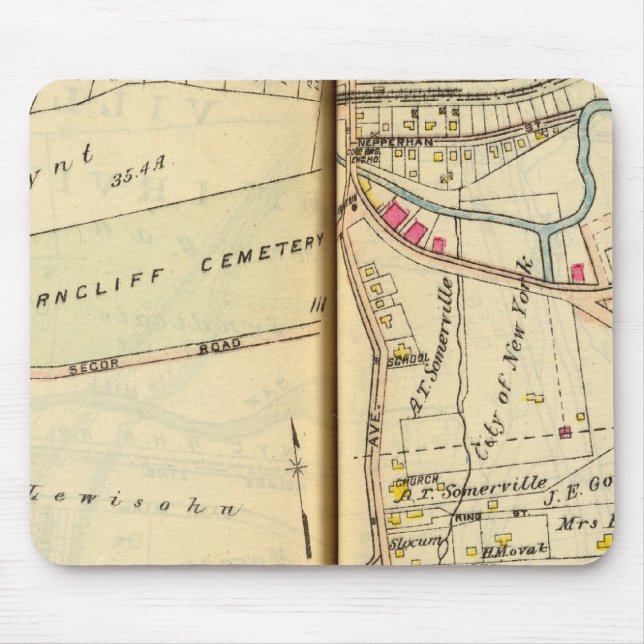 ynt
35.4A
RNCLIFF CEMETERY
SECOR ROAD
Lewisohn
NEPPERHAN ST.
ENG.HO.
SCHOOL
A.T. Somerville
City of New York
AVE.
CHURCH
A.T. Somerville
J.E. Go
KING ST.
Mrs
Slocum
H.Movat